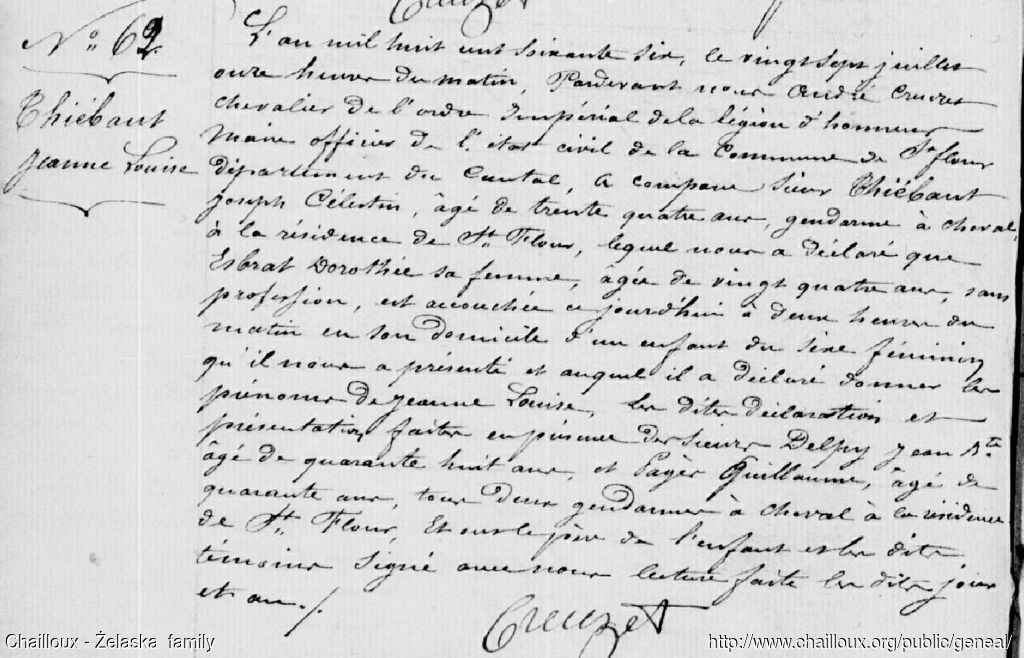 Creuzet
N° 62
Thiébaut
Jeanne Louise
L'an mil huit cent soixante six, le vingt sept juillet
onze heures du matin, Pardevant nous André Creuzet
chevalier de l'ordre Impérial de la légion d'honneur
Maire officier de l'état civil de la Commune de St flour
département du Cantal, a comparu Sieur Thiébaut
Joseph Célestin, âgé de trente quatre ans, gendarme à cheval,
à la résidence de St Flour, lequel nous a déclaré que
Esbrat Dorothée sa femme, âgée de vingt quatre ans, sans
profession, est accouchée ce jourd'hui à deux heures du
matin en son domicile d'un enfant du sexe féminin
qu'il nous a présenté et auquel il a déclaré donner les
prénoms de Jeanne Louise, les dites déclaration et
présentation faites en présence des sieurs Delpuy Jean Bte
âgé de quarante huit ans, et Pagès Guillaume, âgé de
quarante ans, tous deux gendarmes à cheval à la résidence
de St Flour, Et ont le père de l'enfant et les dits
témoins signé avec nous lecture faite les dits jour
et an ./.
Creuzet
Chailloux - Żelaska family
http://www.chailloux.org/public/geneal/